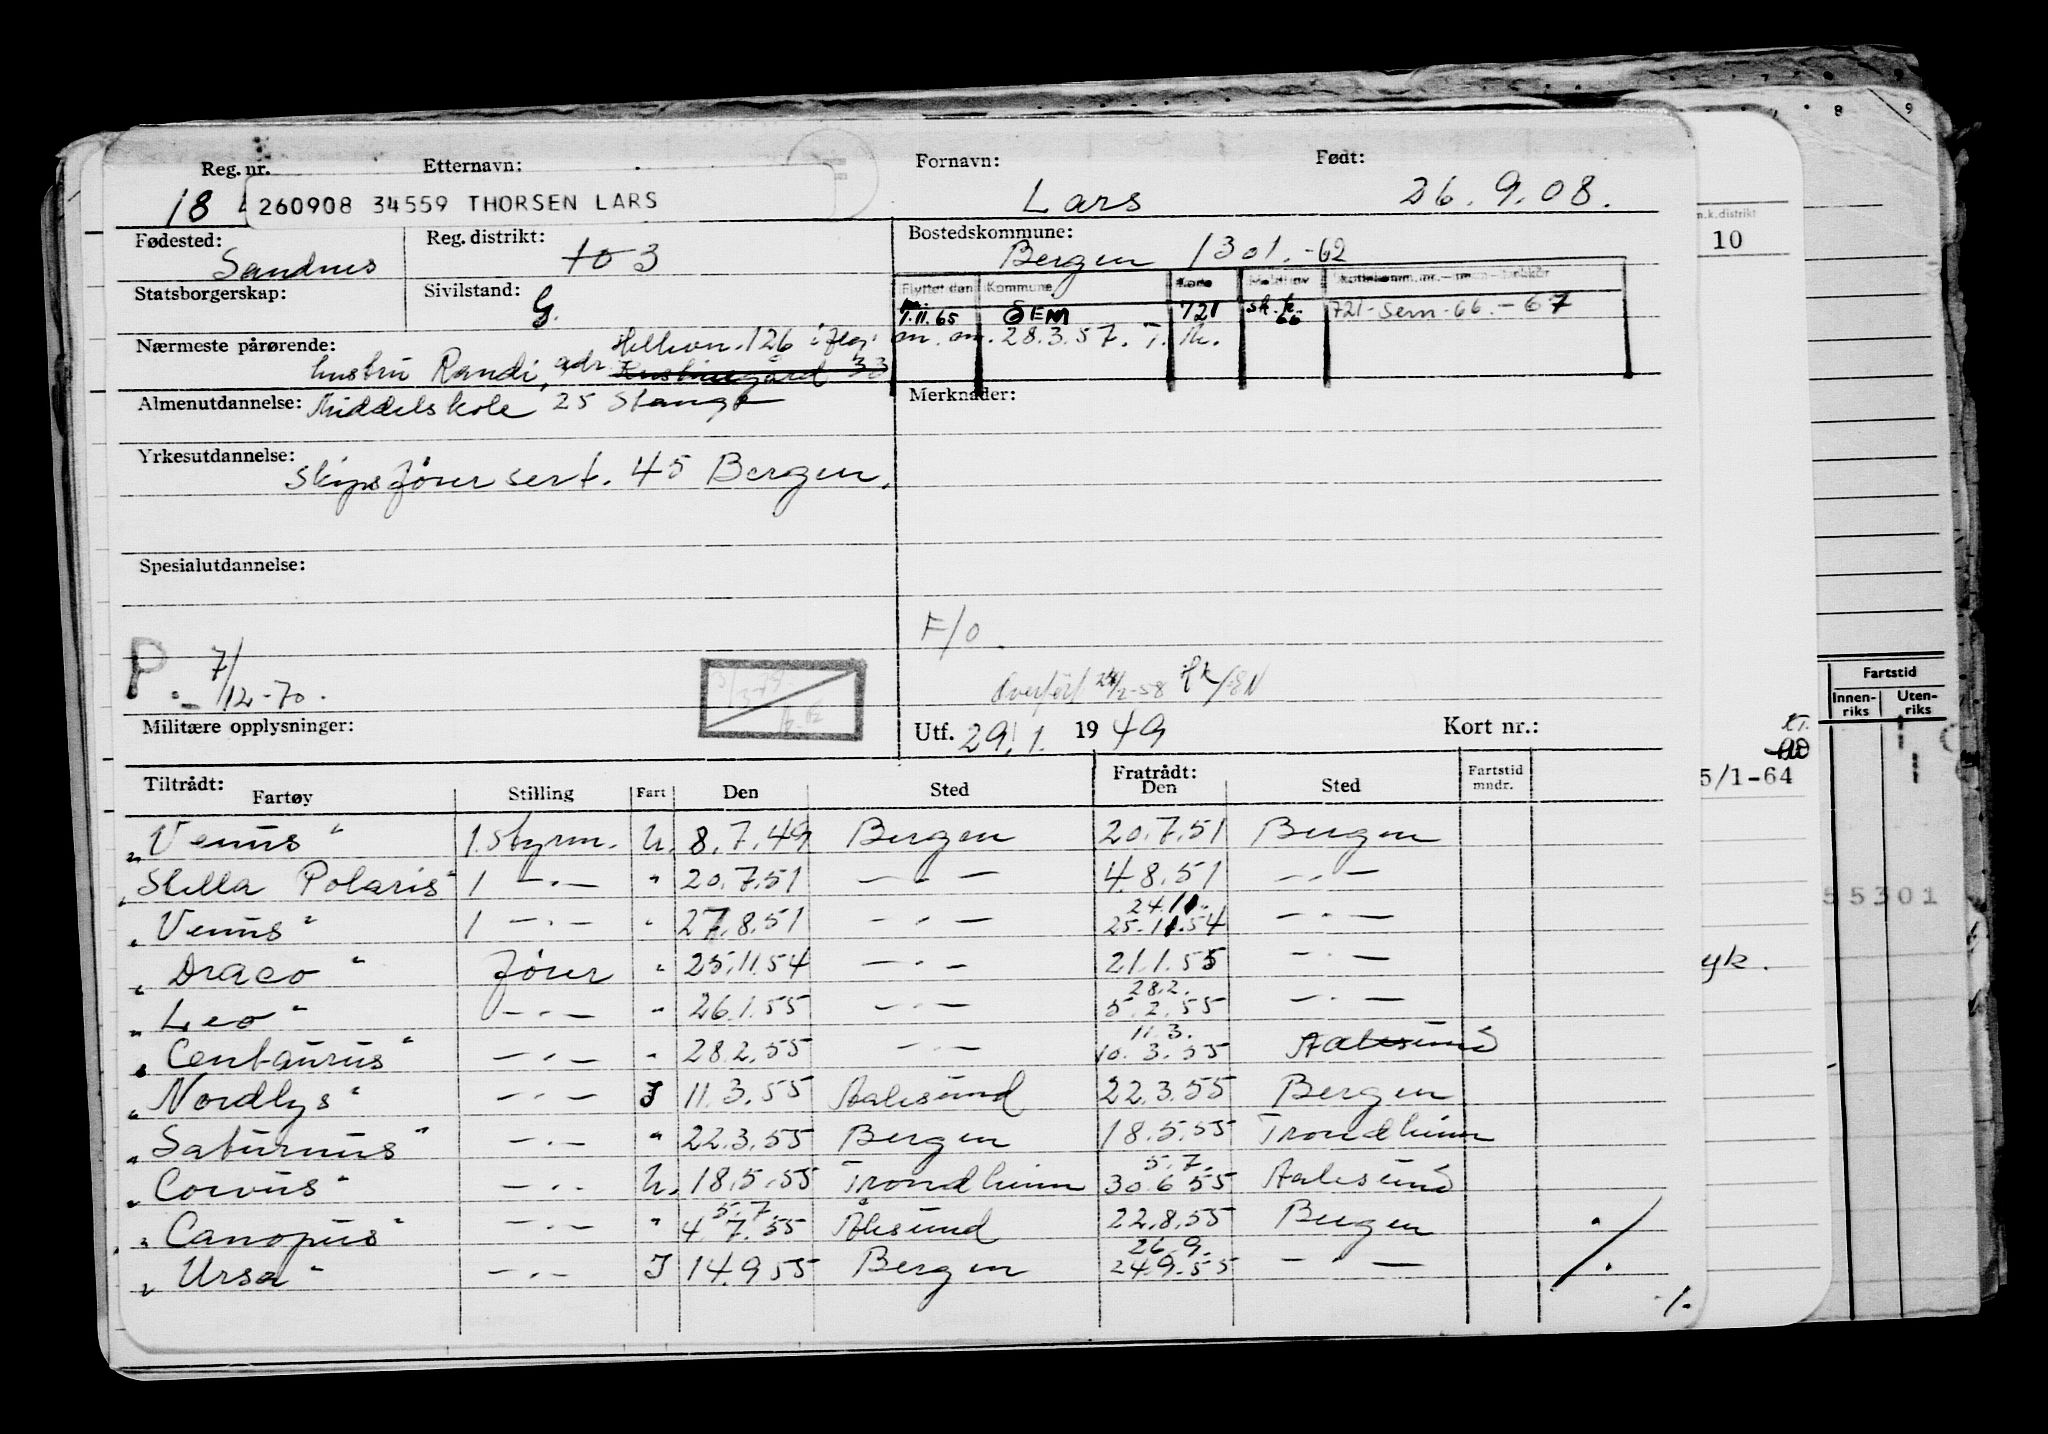 Reg. nr. Etternavn: Fornavn: Født:
18 260908 34559 THORSEN LARS Lars 26.9.08.
Fødested: Sandnes Reg. distrikt: 103 Bostedskommune: Bergen 1301.-62
Statsborgerskap: Sivilstand: G. Flyttet den Kommune Kode Meldt av
1.11.65 SEM 721 sk.k. 66 721-Sem-66.-67
Nærmeste pårørende: m.m. 28.3.57. T. Th.
hustru Randi, adr.
Almenutdannelse: Middelskole 25 Stange Merknader:
Yrkesutdannelse: Skipsførersert. 45 Bergen.
Spesialutdannelse:
F/O.
P. 7/12-70.
Overført 24/2-58
Militære opplysninger: Utf. 29.1. 1949 Kort nr.:
Tiltrådt: Fratrådt: Fartstid mndr.
Fartøy Stilling Fart Den Sted Den Sted
"Venus" 1. Styrm. U. 8.7.49 Bergen 20.7.51 Bergen
"Stella Polaris" 1 —.— " 20.7.51 —.— 4.8.51 —.—
24.11.
"Venus" 1 —.— " 27.8.51 —.— 25.11.54 —.—
"Draco" fører " 25.11.54 —.— 21.1.55 —.—
28.2.
"Leo" —.— " 26.1.55 —.— 5.2.55 —.—
11.3.
"Centaurus" —.— " 28.2.55 —.— 10.3.55 Aalesund
"Nordlys" —.— I 11.3.55 Aalesund 22.3.55 Bergen
"Saturnus" —.— " 22.3.55 Bergen 18.5.55 Trondheim
5.7.
"Corvus" —.— U. 18.5.55 Trondheim 30.6.55 Aalesund
5.7.
"Canopus" —.— " 4.7.55 Ålesund 22.8.55 Bergen
26.9.
"Ursa" —.— I 14.9.55 Bergen 24.9.55 —.—
./.
-/-
8 9
m.k.distrikt
10
Fartstid
Innen-riks Uten-riks
5/1-64
55301
yk.